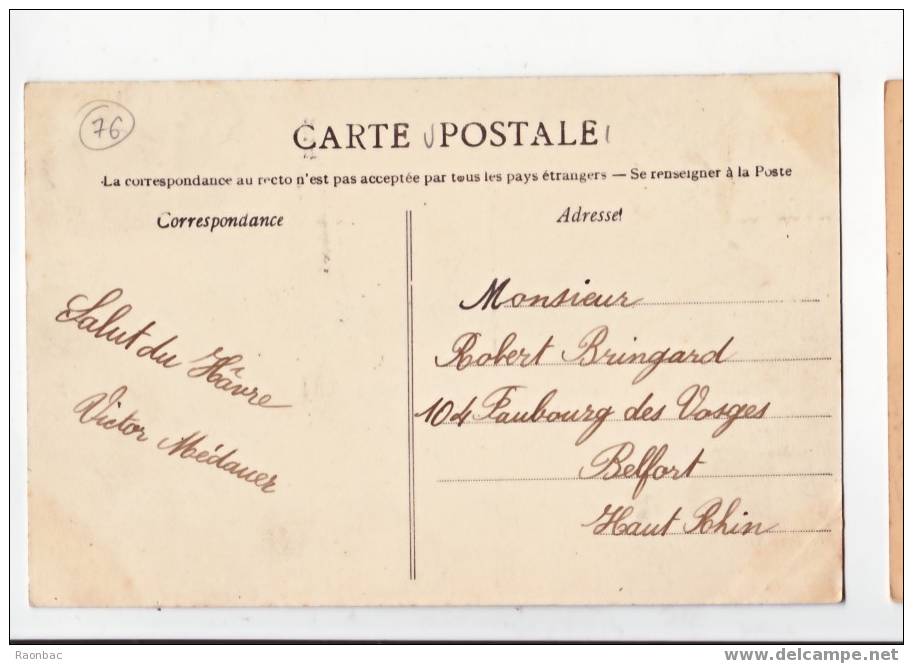 76
CARTE POSTALE
La correspondance au recto n'est pas acceptée par tous les pays étrangers — Se renseigner à la Poste
Correspondance
Salut du Hâvre
Victor Médauer
Adresse
Monsieur
Robert Bringard
104 Faubourg des Vosges
Belfort
Haut Rhin
Raonbac
www.delcampe.net